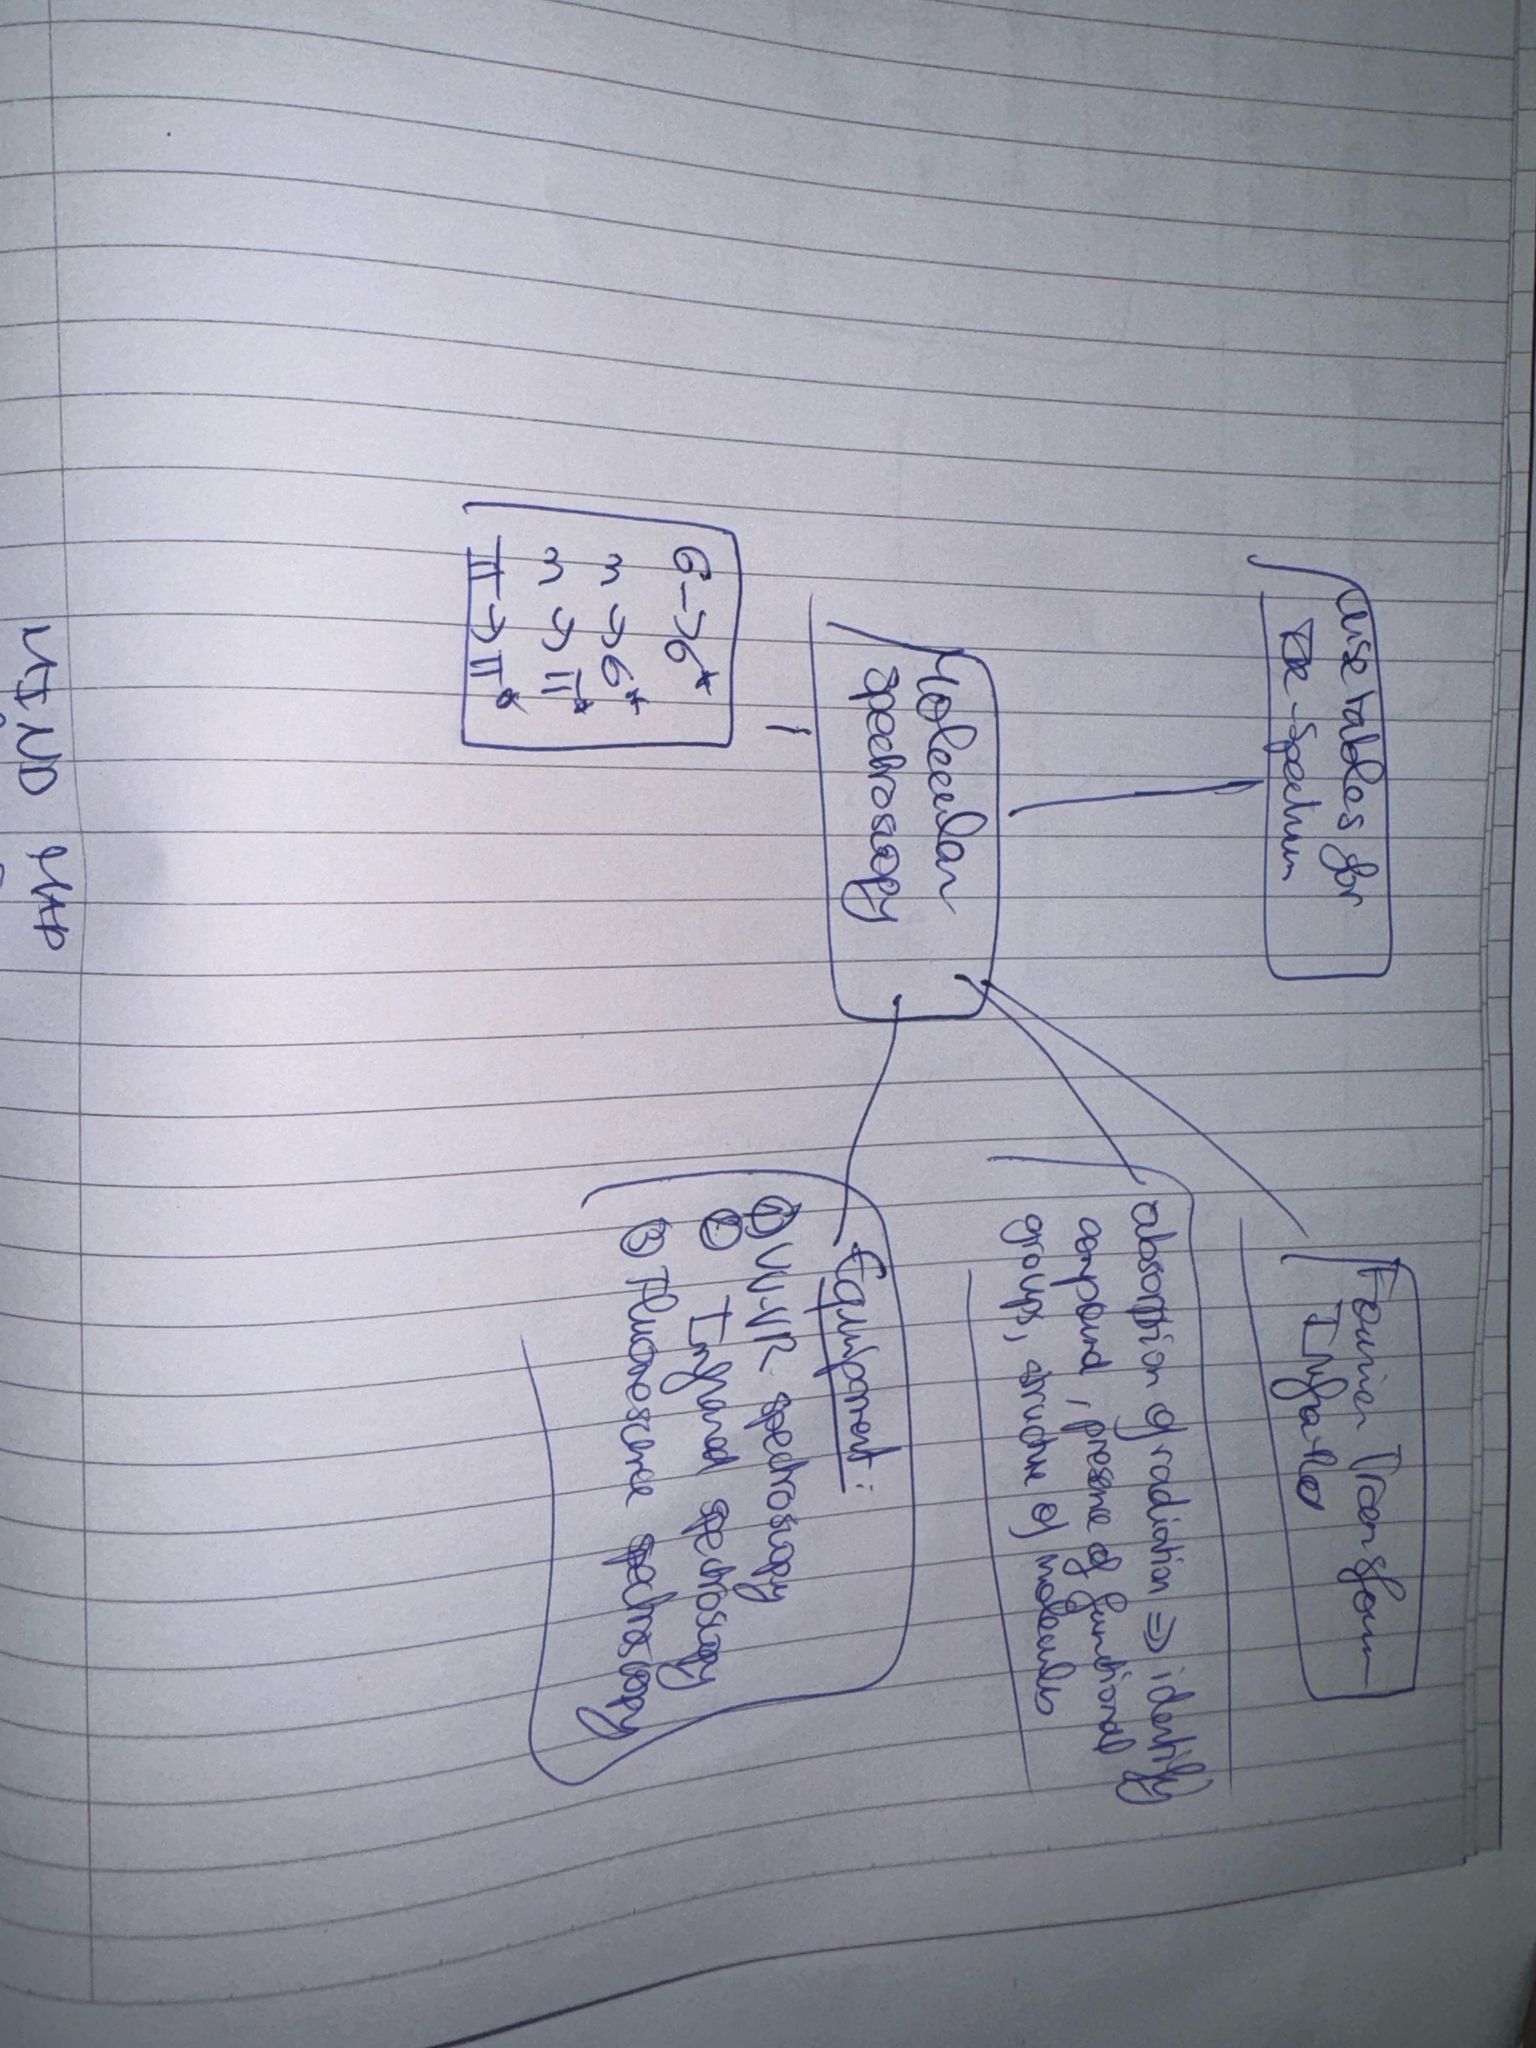 use tables for
IR-Spectrum
Fourier Transform
Infra-Red
absorption of radiation => identify
compound, presence of functional
groups, structure of molecules
Molecular
spectroscopy
Equipment:
① UV-VR spectroscopy
② Infrared spectroscopy
③ Fluorescence spectroscopy
σ → σ*
n → σ*
n → π*
π → π*
MIND MAP